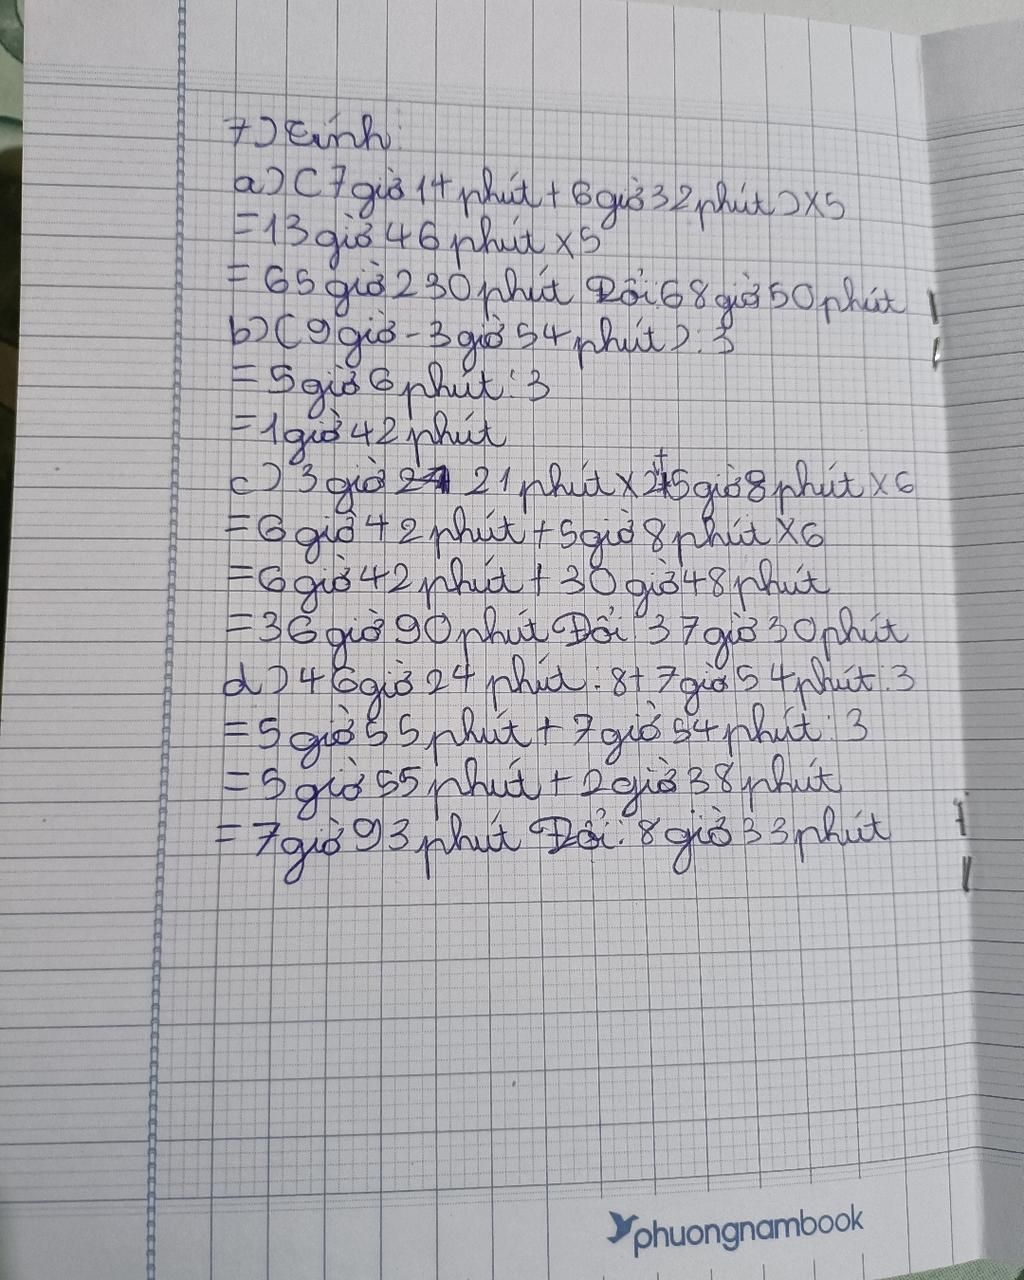 7) Tính:
a) (7 giờ 14 phút + 6 giờ 32 phút) x 5
= 13 giờ 46 phút x 5
= 65 giờ 230 phút Đổi: 68 giờ 50 phút
b) (9 giờ - 3 giờ 54 phút) : 3
= 5 giờ 6 phút : 3
= 1 giờ 42 phút
c) 3 giờ 21 phút x 2 + 5 giờ 8 phút x 6
= 6 giờ 42 phút + 5 giờ 8 phút x 6
= 6 giờ 42 phút + 30 giờ 48 phút
= 36 giờ 90 phút Đổi: 37 giờ 30 phút
d) 46 giờ 24 phút : 8 + 7 giờ 54 phút : 3
= 5 giờ 55 phút + 7 giờ 54 phút : 3
= 5 giờ 55 phút + 2 giờ 38 phút
= 7 giờ 93 phút Đổi: 8 giờ 33 phút
phuongnambook